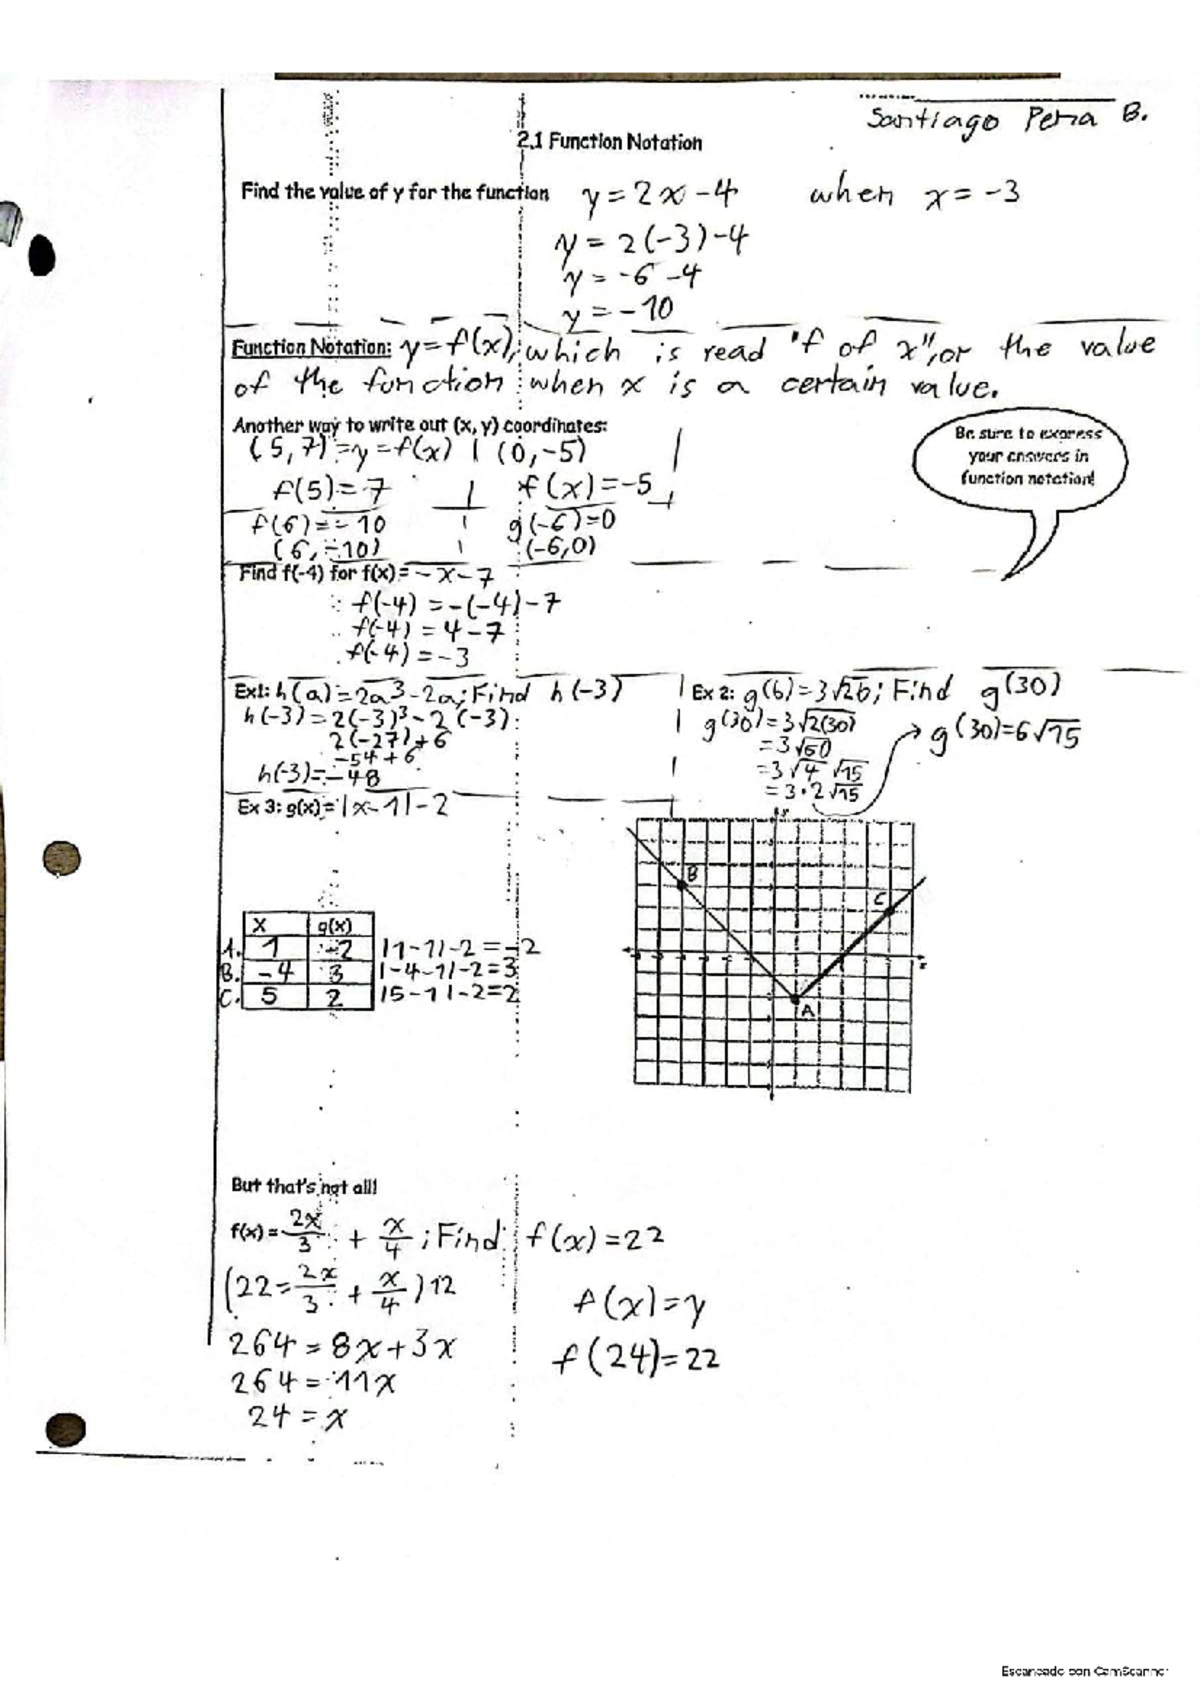 Santiago Pena B.
2.1 Function Notation
Find the value of y for the function y = 2x - 4 when x = -3
y = 2(-3) - 4
y = -6 - 4
y = -10
Function Notation: y = f(x), which is read "f of x", or the value
of the function when x is a certain value.
Another way to write out (x, y) coordinates:
(5, 7) = y = f(x) | (0, -5)
f(5) = 7 | f(x) = -5
f(6) = -10 | g(-6) = 0
(6, -10) | (-6, 0)
Be sure to express
your answers in
function notation!
Find f(-4) for f(x) = -x - 7
f(-4) = -(-4) - 7
f(-4) = 4 - 7
f(-4) = -3
Ex1: h(a) = 2a³ - 2a; Find h(-3)
h(-3) = 2(-3)³ - 2(-3)
2(-27) + 6
-54 + 6
h(-3) = -48
Ex 2: g(b) = 3√2b; Find g(30)
g(30) = 3√2(30)
= 3√60
= 3√4 √15
= 3 · 2√15
g(30) = 6√15
Ex 3: g(x) = |x - 1| - 2
x g(x)
A. 1 -2 |1 - 1| - 2 = -2
B. -4 3 |-4 - 1| - 2 = 3
C. 5 2 |5 - 1| - 2 = 2
y
B
C
x
A
But that's not all!
f(x) = 2x/3 + x/4; Find f(x) = 22
(22 = 2x/3 + x/4) 12
264 = 8x + 3x
264 = 11x
24 = x
f(x) = y
f(24) = 22
Escaneado con CamScanner